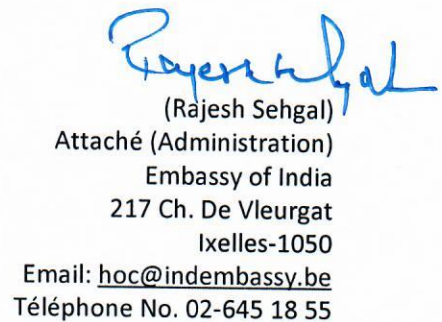 Rajesh Sehgal
(Rajesh Sehgal)
Attaché (Administration)
Embassy of India
217 Ch. De Vleurgat
Ixelles-1050
Email: hoc@indembassy.be
Téléphone No. 02-645 18 55